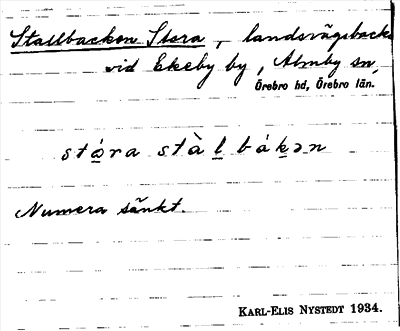 Stallbacken Stora, landsvägsbacke
vid Ekeby by, Almby sn,
Örebro hd, Örebro län.
stó̱ra stàḻ báḵən
Numera sänkt.
KARL-ELIS NYSTEDT 1934.